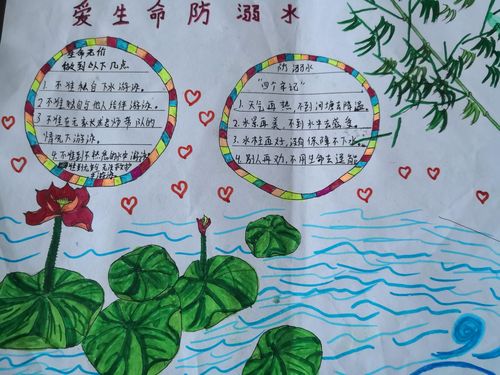 爱生命防溺水
生命无价
做到以下几点
1. 不准私自下水游泳。
2 不准擅自与他人结伴游泳。
3 不准在无家长或老师带队的
情况下游泳。
4. 不准到不熟悉的水域游泳
防溺水
"四个牢记"
1. 天气再热，不到河塘去降温
2. 水果再美，不到水中去感受。
3. 水性再好，没有保障不下水
4. 别人再劝，不用生命去逞能